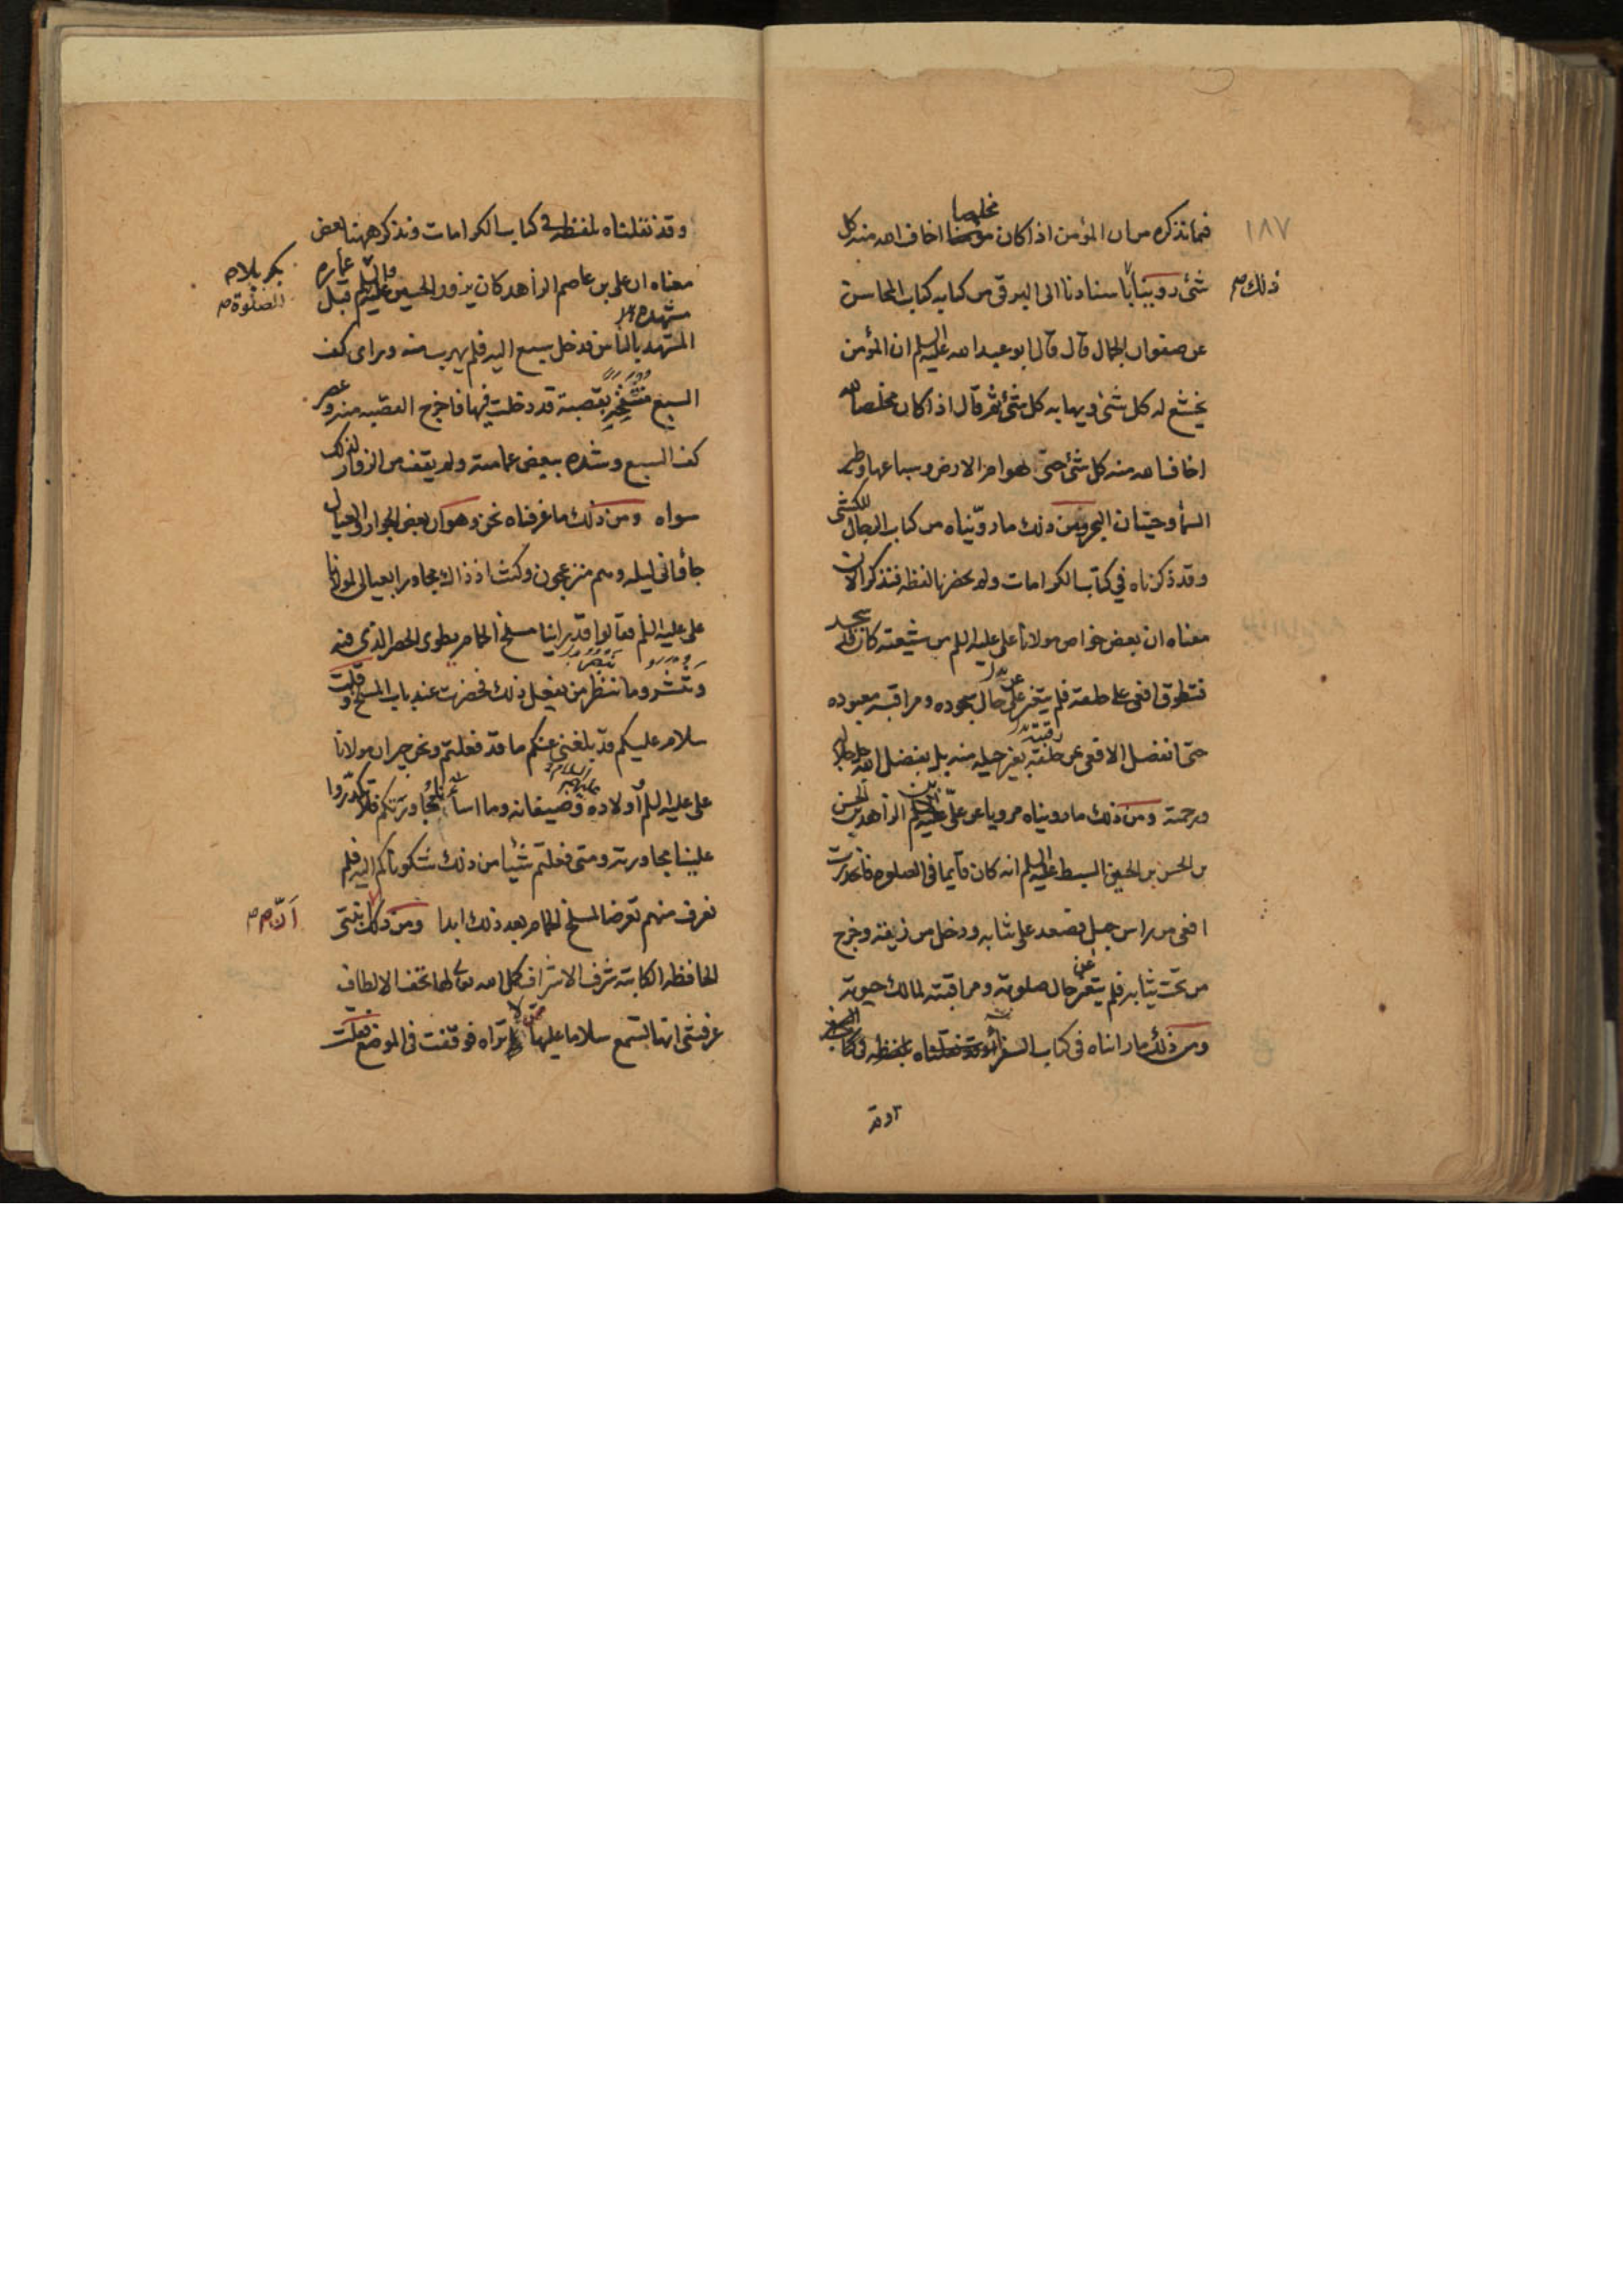 ١٨٧
فيما نذكره من ان المؤمن اذا كان مخلصا اخاف الله منه كل
شئ روينا باسنادنا الى البرقى من كتابه كتاب المحاسن
ذلك
عن صفوان الجمال قال قال ابو عبد الله عليه السلم ان المؤمن
يخشع له كل شئ ويهابه كل شئ ثم قال اذا كان مخلصا لله
اخاف الله منه كل شئ حتى هوام الارض وسباعها وطير
السمأ وحيتان البحر ومن ذلك ما رويناه من كتاب الرجال للكشى
وقد ذكرناه في كتاب الكرامات ولم يحضرنا لفظه فنذكر الان
معناه ان بعض خواص مولانا على عليه السلم من شيعته كان سجد
فتطوق افعى على حلقه فلم يتغير عن حال سجوده ومراقبة معبوده
حتى انفصل الافعى عن رقبته بغير حيلة منه بل بفضل الله جل جلاله
ورحمته ومن ذلك ما رويناه مرويا عن على بن الزاهد بن الحسن
بن الحسن بن الحسن السبط عليه السلم انه كان قايما فى الصلوة فانحدرت
افعى من راس جبل فصعد على ثيابه ودخل من زيقه وخرج
من تحت ثيابه فلم يتغير عن حال صلوته ومراقبته لمالك حيوته
ومن ذلك ما رايناه فى كتاب
وقد
وقد نقلناه بلفظه فى كتاب الكرامات ونذكر ههنا بعض
معناه ان على بن عاصم الزاهد كان يزور الحسين عليه السلم قبل عمارة
بكربلا
الصلوة
مشهده
المشهد بالناس فدخل سبع اليه فلم يهرب منه وراى كف
السبع منتفخة بقصبة قد دخلت فيها فاخرج القصبه منه وعصر
كف السبع وشده ببعض عمامته ولم يقف من الزوار لذلك
سواه ومن ذلك ما عرفناه نحن وهو ان بعض الجوار والعيال
جأوانى ليله وهم منزعجون وكنت اذ ذاك مجاورا بعيالى لمولانا
على عليه السلم فقالوا قد راينا مسلخ الحمام يطوى الحصر الذى فيه
وتنشر وما ننظر من يفعل ذلك فحضرت عند باب المسلخ وقلت
سلام عليكم قد بلغنى عنكم ما قد فعلتم ونحن جيران مولانا
على عليه السلم واولاده وضيفانه وما اسأنا مجاورتكم فلا تكدروا
علينا مجاورته ومتى فعلتم شيئا من ذلك شكوناكم اليه فلم
نعرف منهم تعرضا لمسلخ الحمام بعد ذلك ابدا ومن ذلك ابنتى
ان
الحافظه الكاتبه شرف الاشراف كمل الله تعالى لها تحف الالطاف
عرفتنى انها تسمع سلاما عليها ممن لا تراه فوقفت فى الموضع فقلت